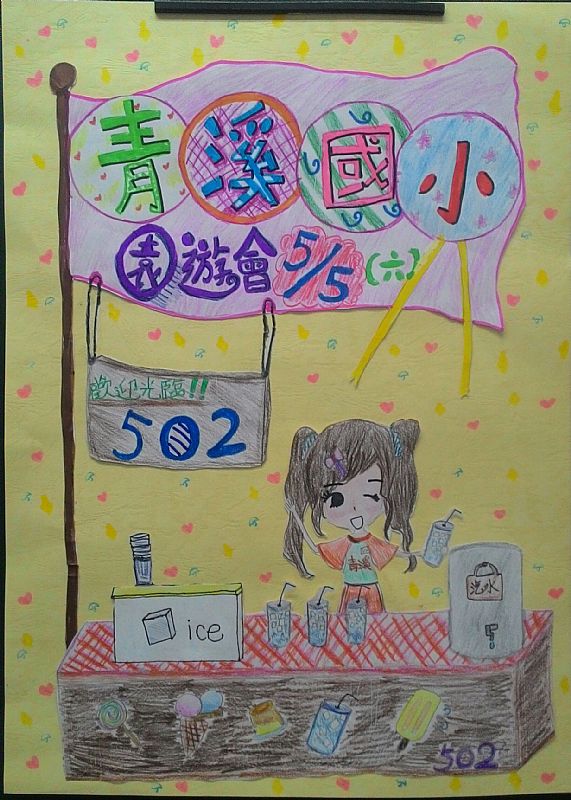 青溪國小
園遊會 5/5 (六)
歡迎光臨!!
502
青溪
汽水
ice
502